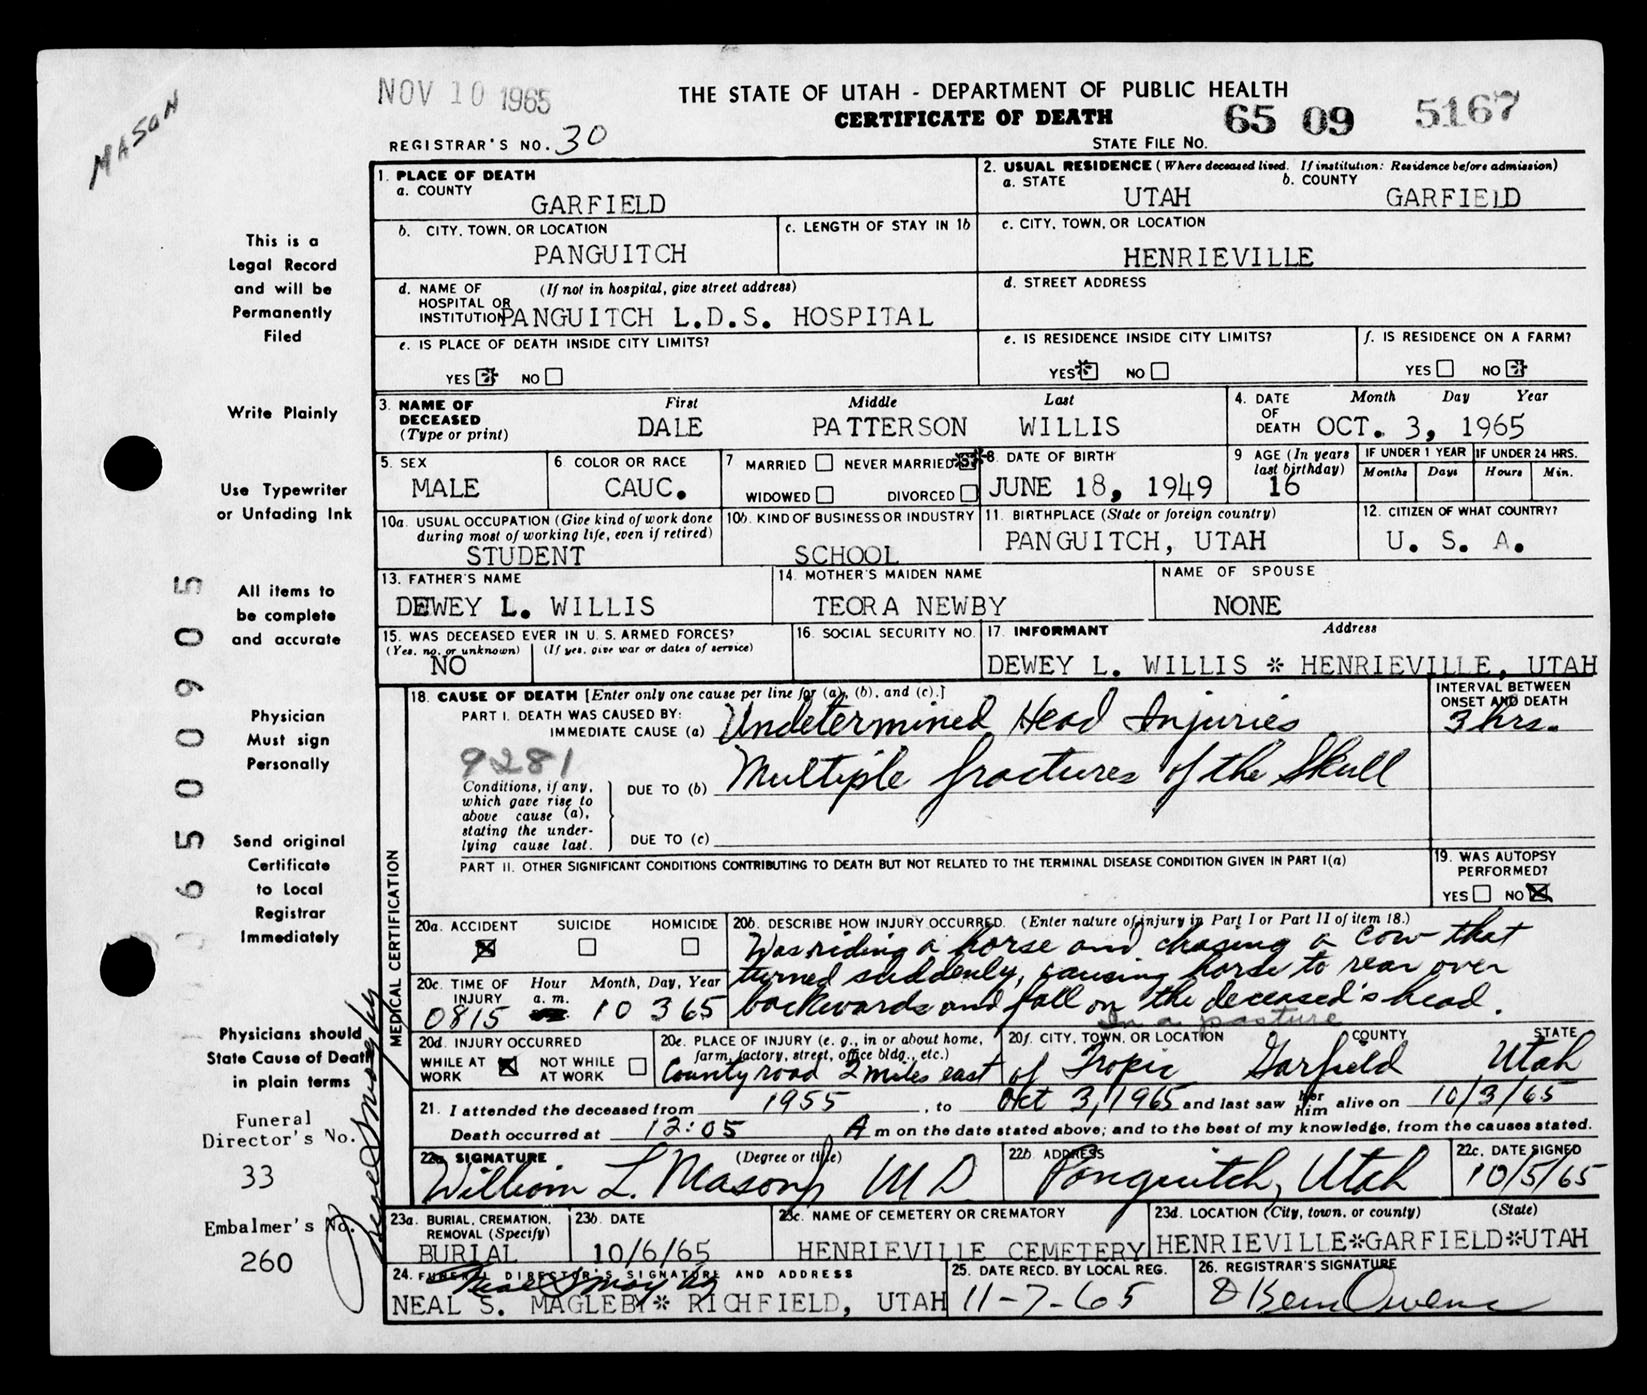 MASON
NOV 10 1965
THE STATE OF UTAH - DEPARTMENT OF PUBLIC HEALTH
CERTIFICATE OF DEATH
65 09 5167
REGISTRAR'S NO. 30
STATE FILE NO.
This is a
Legal Record
and will be
Permanently
Filed
Write Plainly
Use Typewriter
or Unfading Ink
All items to
be complete
and accurate
Physician
Must sign
Personally
Send original
Certificate
to Local
Registrar
Immediately
Physicians should
State Cause of Death
in plain terms
Funeral
Director's No.
33
Embalmer's No.
260
6500905
1. PLACE OF DEATH
a. COUNTY
GARFIELD
2. USUAL RESIDENCE (Where deceased lived. If institution: Residence before admission)
a. STATE
UTAH
b. COUNTY
GARFIELD
b. CITY, TOWN, OR LOCATION
PANGUITCH
c. LENGTH OF STAY IN 1b
c. CITY, TOWN, OR LOCATION
HENRIEVILLE
d. NAME OF (If not in hospital, give street address)
HOSPITAL OR
INSTITUTION PANGUITCH L.D.S. HOSPITAL
d. STREET ADDRESS
e. IS PLACE OF DEATH INSIDE CITY LIMITS?
YES NO
e. IS RESIDENCE INSIDE CITY LIMITS?
YES NO
f. IS RESIDENCE ON A FARM?
YES NO
3. NAME OF DECEASED (Type or print)
First Middle Last
DALE PATTERSON WILLIS
4. DATE OF DEATH
Month Day Year
OCT. 3, 1965
5. SEX
MALE
6 COLOR OR RACE
CAUC.
7 MARRIED NEVER MARRIED
WIDOWED DIVORCED
8. DATE OF BIRTH
JUNE 18, 1949
9 AGE (In years last birthday)
16
IF UNDER 1 YEAR
Months Days
IF UNDER 24 HRS.
Hours Min.
10a. USUAL OCCUPATION (Give kind of work done during most of working life, even if retired)
STUDENT
10b. KIND OF BUSINESS OR INDUSTRY
SCHOOL
11. BIRTHPLACE (State or foreign country)
PANGUITCH, UTAH
12. CITIZEN OF WHAT COUNTRY?
U. S. A.
13. FATHER'S NAME
DEWEY L. WILLIS
14. MOTHER'S MAIDEN NAME
TEORA NEWBY
NAME OF SPOUSE
NONE
15. WAS DECEASED EVER IN U. S. ARMED FORCES?
(Yes, no, or unknown) (If yes, give war or dates of service)
NO
16. SOCIAL SECURITY NO.
17. INFORMANT Address
DEWEY L. WILLIS * HENRIEVILLE, UTAH
MEDICAL CERTIFICATION
18. CAUSE OF DEATH [Enter only one cause per line for (a), (b), and (c).]
INTERVAL BETWEEN
ONSET AND DEATH
PART I. DEATH WAS CAUSED BY:
IMMEDIATE CAUSE (a) Undetermined Head Injuries
3 hrs.
9281
Conditions, if any,
which gave rise to
above cause (a),
stating the under-
lying cause last.
DUE TO (b) Multiple fractures of the Skull
DUE TO (c)
PART II. OTHER SIGNIFICANT CONDITIONS CONTRIBUTING TO DEATH BUT NOT RELATED TO THE TERMINAL DISEASE CONDITION GIVEN IN PART I(a)
19. WAS AUTOPSY
PERFORMED?
YES NO
20a. ACCIDENT SUICIDE HOMICIDE
20b. DESCRIBE HOW INJURY OCCURRED. (Enter nature of injury in Part I or Part II of item 18.)
Was riding a horse and chasing a cow that
turned suddenly, causing horse to rear over
backwards and fall on the deceased's head.
In a pasture
20c. TIME OF INJURY
Hour a. m. Month, Day, Year
0815 10 3 65
20d. INJURY OCCURRED
WHILE AT WORK NOT WHILE AT WORK
20e. PLACE OF INJURY (e. g., in or about home, farm, factory, street, office bldg., etc.)
20f. CITY, TOWN, OR LOCATION COUNTY STATE
County road 2 miles east of Tropic Garfield Utah
21. I attended the deceased from 1955, to Oct 3, 1965 and last saw her him alive on 10/3/65
Death occurred at 12:05 A m on the date stated above; and to the best of my knowledge, from the causes stated.
22a. SIGNATURE (Degree or title)
William L. Mason M D
22b. ADDRESS
Panguitch, Utah
22c. DATE SIGNED
10/5/65
23a. BURIAL, CREMATION, REMOVAL (Specify)
BURIAL
23b. DATE
10/6/65
23c. NAME OF CEMETERY OR CREMATORY
HENRIEVILLE CEMETERY
23d. LOCATION (City, town, or county) (State)
HENRIEVILLE*GARFIELD*UTAH
24. FUNERAL DIRECTOR'S SIGNATURE AND ADDRESS
NEAL S. MAGLEBY* RICHFIELD, UTAH
25. DATE RECD. BY LOCAL REG.
11-7-65
26. REGISTRAR'S SIGNATURE